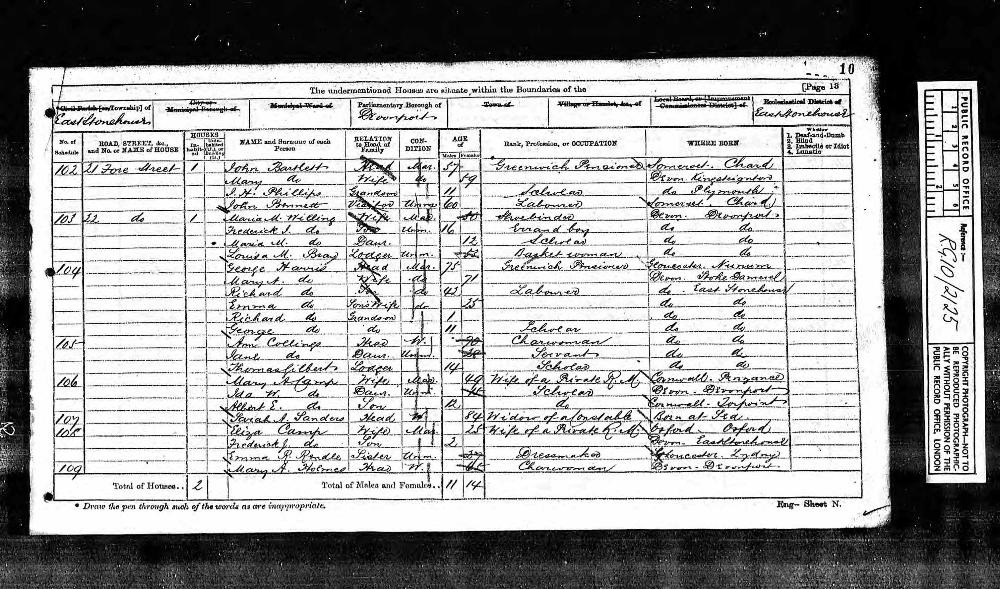 10
The undermentioned Houses are situate within the Boundaries of the [Page 13
Civil Parish [or Township] of City or Municipal Borough of Municipal Ward of Parliamentary Borough of Town of Village or Hamlet, &c., of Local Board, or [Improvement Commissioners District] of Ecclesiastical District of
East Stonehouse Devonport East Stonehouse
No. of Schedule ROAD, STREET, &c., and No. or NAME of HOUSE HOUSES Inhabited NAME and Surname of each Person RELATION to Head of Family CONDITION AGE of Males Females Rank, Profession, or OCCUPATION WHERE BORN Whether 1. Deaf-and-Dumb 2. Blind 3. Imbecile or Idiot 4. Lunatic
102 21 Fore Street 1 John Bartlett Head Mar. 57 Greenwich Pensioner Somerset. Chard
Mary do Wife do 59 Devon Kingsteignton
J. H. Phillips Grandson 11 Scholar do Plymouth
John Bennett Visitor Unm 60 Labourer Somerset. Chard
103 22 do 1 Maria M. Willing Wife Mar. 50 Shoebinder Devon. Devonport
Frederick J. do Son Unm. 16 Errand boy do do
Maria M. do Daur. 12 Scholar do do
Louisa M. Lodger Unm. Basket woman do do
104 George Harris Head Mar. 75 Greenwich Pensioner Gloucester.
Mary A. do Wife do 71 Devon. Stoke Damerel
Richard do Son do 42 Labourer do East Stonehouse
Emma do Son's Wife do 25 do do
Richard do Grandson 1 do do
George do do 11 Scholar do do
105 Ann Collings Head W. Charwoman do do
Jane do Daur. Unm. Servant do do
Thomas Gilbert Lodger 14 Scholar do do
106 Mary A Camp Wife Mar. 49 Wife of a Private R.M Cornwall. Penzance
Ida W. do Daur. Unm. Scholar Devon. Devonport
Albert E. do Son 12 do Cornwall. Torpoint
107 Sarah A. Sanders Head W. 84 Widow of a Constable Born at Sea
108 Eliza Camp Wife Mar. 25 Wife of a Private R.M Oxford. Oxford
Frederick J. do Son 2 Devon. East Stonehouse
Emma R. Rendle Sister Unm. Dressmaker Gloucester. Lydney
109 Mary A. Holmes Head W. Charwoman Devon. Devonport
Total of Houses.. 2 Total of Males and Females.. 11 14
* Draw the pen through such of the words as are inappropriate. Eng— Sheet N.
PUBLIC RECORD OFFICE
1 2 3 4 5 6
Reference:-
RG10/2125
COPYRIGHT PHOTOGRAPH—NOT TO BE REPRODUCED PHOTOGRAPHICALLY WITHOUT PERMISSION OF THE PUBLIC RECORD OFFICE, LONDON